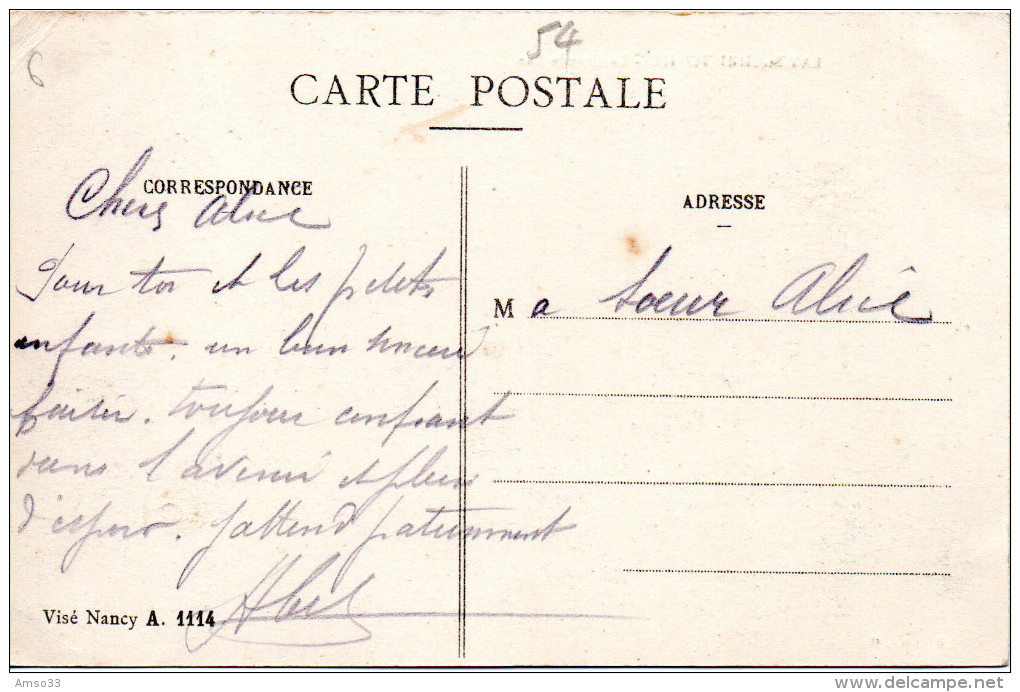 6
54
CARTE POSTALE
CORRESPONDANCE
Chere Alice
Pour toi et les petits
enfants. un bon sincere
baiser. toujour confiant
dans l'avenir et plein
d'espoir. j'attend patiemment
Abel
Visé Nancy A. 1114
ADRESSE
M a soeur Alice
Amso33
delcampe.net